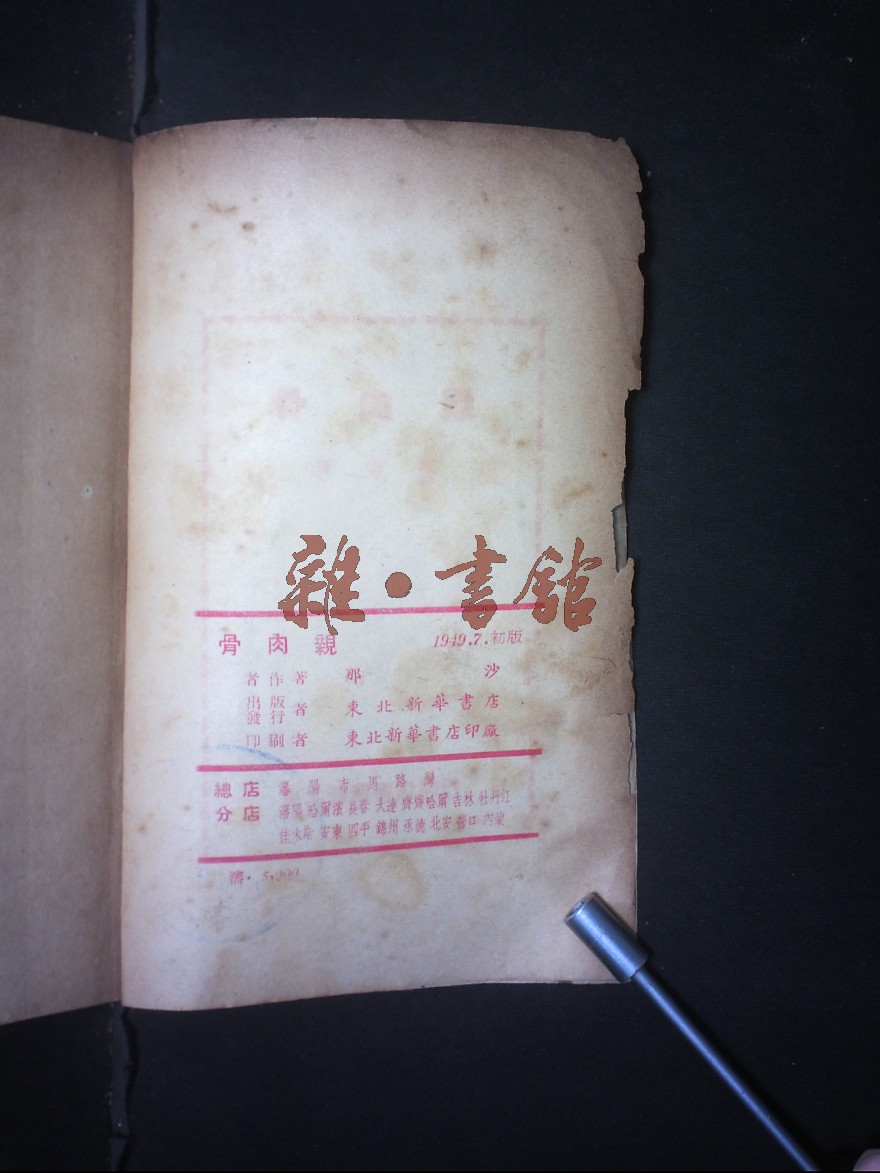 雜·書館
骨肉親 1949.7.初版
者作著 那沙
出版發行者 東北新華書店
印刷者 東北新華書店印廠
總店 瀋陽市馬路灣
分店 瀋陽 哈爾濱 長春 大連 齊齊哈爾 吉林 牡丹江
佳木斯 安東 四平 錦州 承德 北安 營口 內蒙
瀋·5,000